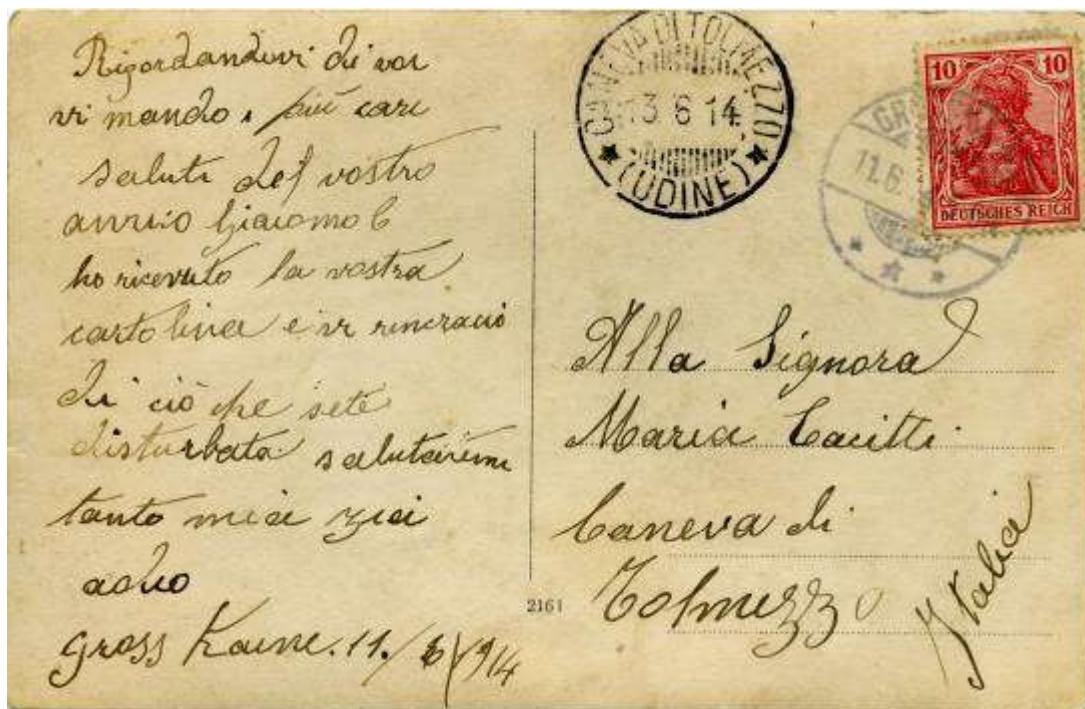 Rigordandovi di voi
vi mando i più cari
saluti del vostro
amico Giacomo C
ho ricevuto la vostra
cartolina e vi rincracio
di ciò che sete
disturbata salutaremi
tanto mia zia
adio
Gross Kaine. 11./6/914
CANEVA DI TOLMEZZO
13 6 14
(UDINE)
10 10
DEUTSCHES REICH
GRO
11.6.
Alla Signora
Maria Cacitti
Caneva di
Tolmezzo
Italia
2161